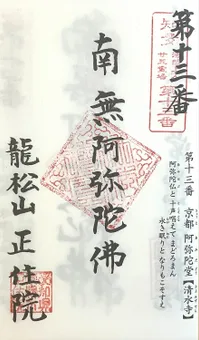 第十三番
南無阿弥陀佛
龍松山 正住院
第十三番 京都 阿弥陀堂【清水寺】
阿弥陀仏と 十声唱えて まどろまん
永き眠りと なりもこそすえ